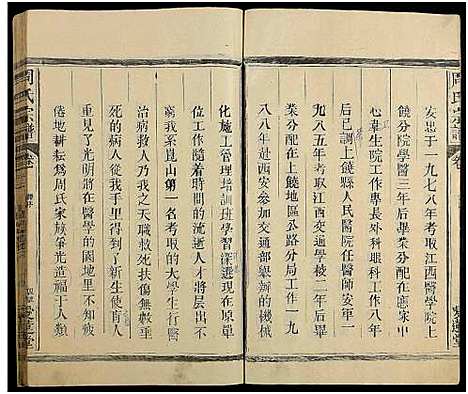 周氏宗譜
安忠于一九七八年考取江西醫學院上
饒分院學醫三年后畢業分配在應家中
心畢生院工作外科眼科工作八年
后已調上饒縣人民醫院任醫師安軍一
九八五年考取江西交通學校二年后畢
業分配在上饒地區公路分局工作一九
八八年赴西安參加交通部舉辦的機械
化施工管理培訓班學習深選現在原單
位工作隨着時間的流逝人才將層出不
窮我系崑山第一名考取的大學生行醫
治病救人乃我之天職救死扶傷無數垂
死的病人從我手里得到了新生使他們
重見了光明將在醫學的園地里不
倦地耕耘爲周氏家族爭光造福于人類
周氏宗譜
卷
愛蓮堂